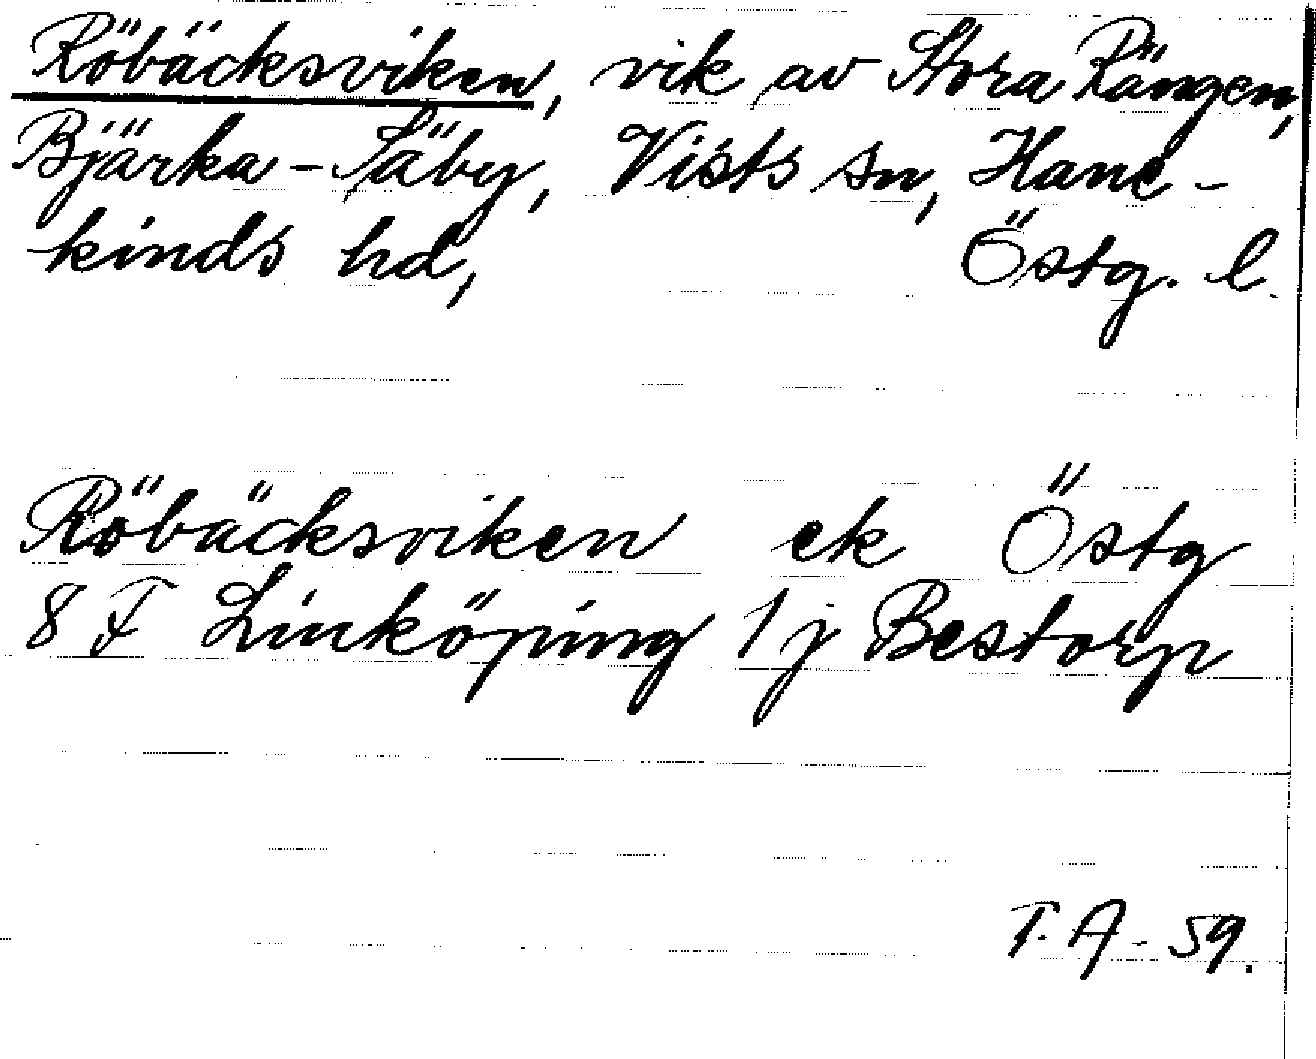 Röbäcksviken, vik av Stora Rängen,
Bjärka-Säby, Vists sn, Hane-
kinds hd, Östg. l.
Röbäcksviken ek Östg
8 F Linköping 1 j Bestorp
T. A - 59.